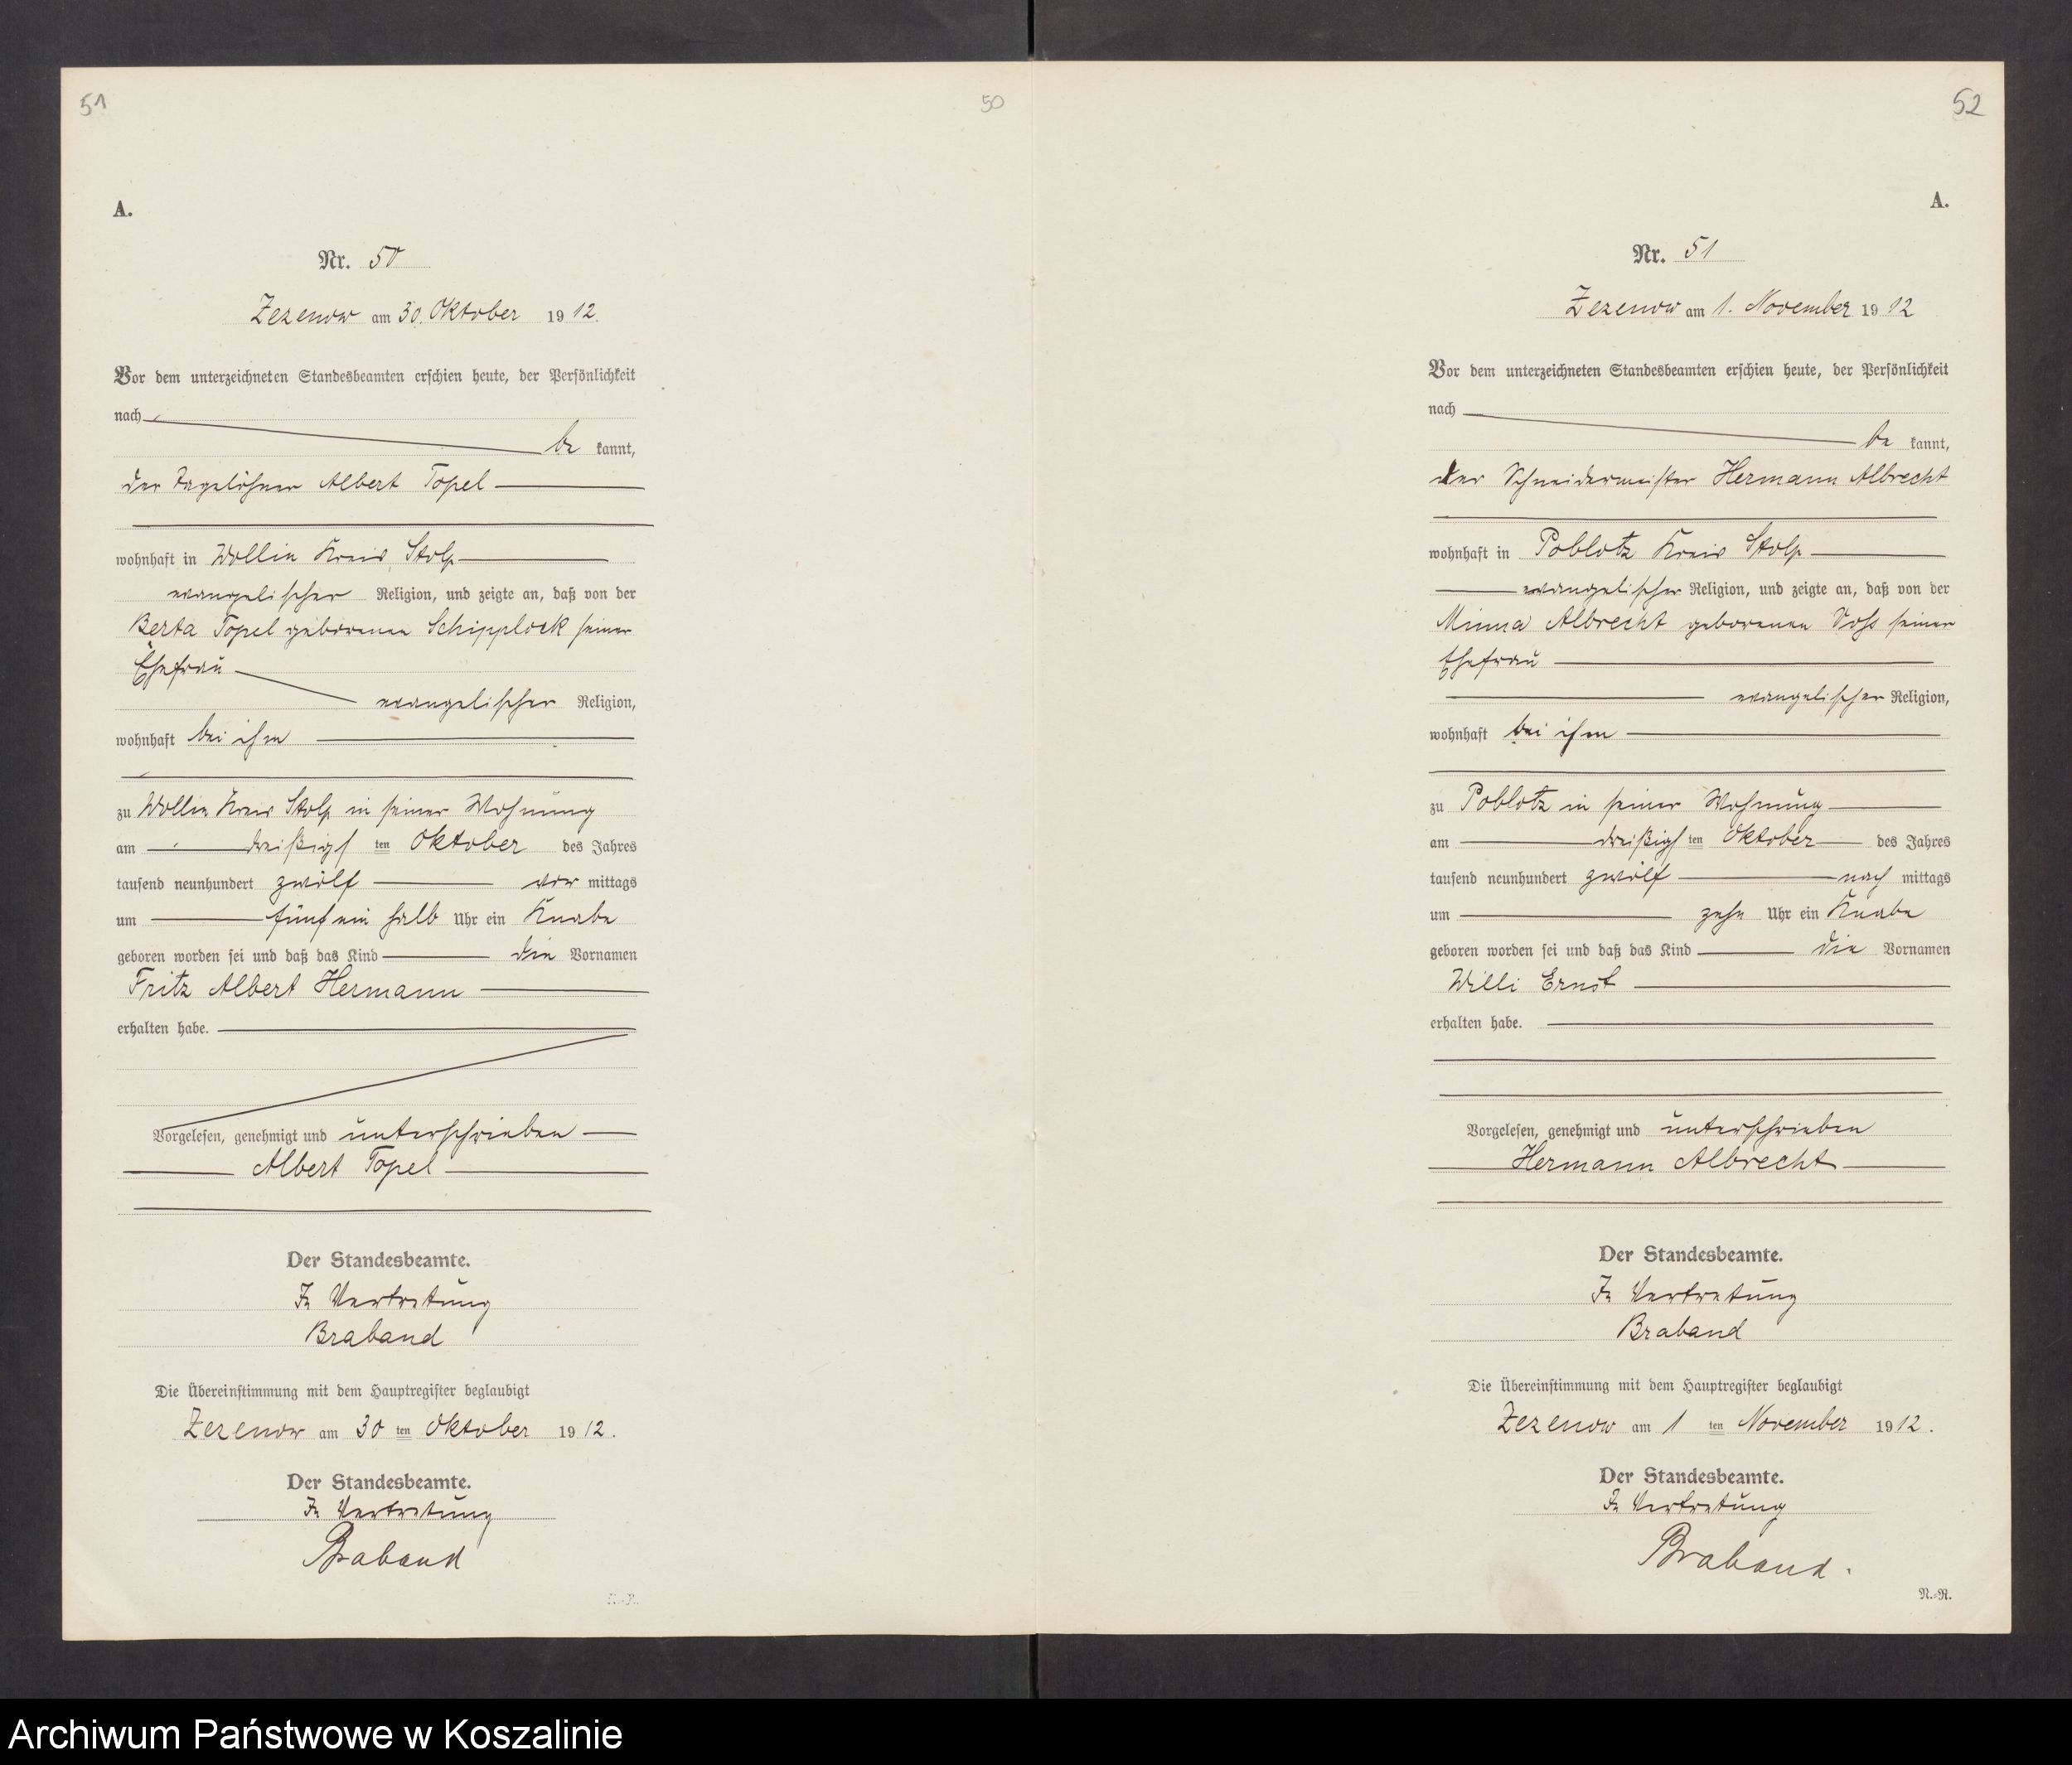 51
50
A.
Nr. 50
Zezenow am 30. Oktober 1912.
Vor dem unterzeichneten Standesbeamten erschien heute, der Persönlichkeit
nach
be kannt,
der Tagelöhner Albert Topel
wohnhaft in Wollin Kreis Stolp
evangelischer Religion, und zeigte an, daß von der
Berta Topel geborenen Schipplock seiner
Ehefrau
evangelischer Religion,
wohnhaft bei ihm
zu Wollin Kreis Stolp in seiner Wohnung
am dreißigsten Oktober des Jahres
tausend neunhundert zwölf vor mittags
um fünf ein halb Uhr ein Knabe
geboren worden sei und daß das Kind die Vornamen
Fritz Albert Hermann
erhalten habe.
Vorgelesen, genehmigt und unterschrieben
Albert Topel
Der Standesbeamte.
In Vertretung
Braband
Die Übereinstimmung mit dem Hauptregister beglaubigt
Zezenow am 30 ten Oktober 1912.
Der Standesbeamte.
In Vertretung
Braband
N.-R.
52
A.
Nr. 51
Zezenow am 1. November 1912
Vor dem unterzeichneten Standesbeamten erschien heute, der Persönlichkeit
nach
be kannt,
der Schneidermeister Hermann Albrecht
wohnhaft in Poblotz Kreis Stolp
evangelischer Religion, und zeigte an, daß von der
Minna Albrecht geborenen Voss seiner
Ehefrau
evangelischer Religion,
wohnhaft bei ihm
zu Poblotz in seiner Wohnung
am dreißigsten Oktober des Jahres
tausend neunhundert zwölf nach mittags
um zehn Uhr ein Knabe
geboren worden sei und daß das Kind die Vornamen
Willi Ernst
erhalten habe.
Vorgelesen, genehmigt und unterschrieben
Hermann Albrecht
Der Standesbeamte.
In Vertretung
Braband
Die Übereinstimmung mit dem Hauptregister beglaubigt
Zezenow am 1 ten November 1912.
Der Standesbeamte.
In Vertretung
Braband.
N.-R.
Archiwum Państwowe w Koszalinie